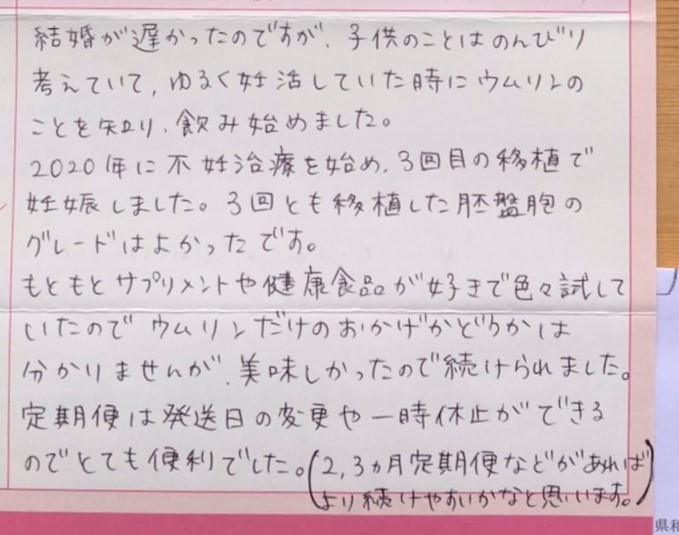 結婚が遅かったのですが、子供のことはのんびり
考えていて、ゆるく妊活していた時にウムリンの
ことを知り、飲み始めました。
2020年に不妊治療を始め、3回目の移植で
妊娠しました。3回とも移植した胚盤胞の
グレードはよかったです。
もともとサプリメントや健康食品が好きで色々試して
いたのでウムリンだけのおかげかどうかは
分かりませんが、美味しかったので続けられました。
定期便は発送日の変更や一時休止ができる
のでとても便利でした。(2,3ヵ月定期便などがあれば
より続けやすいかなと思います。)
県和